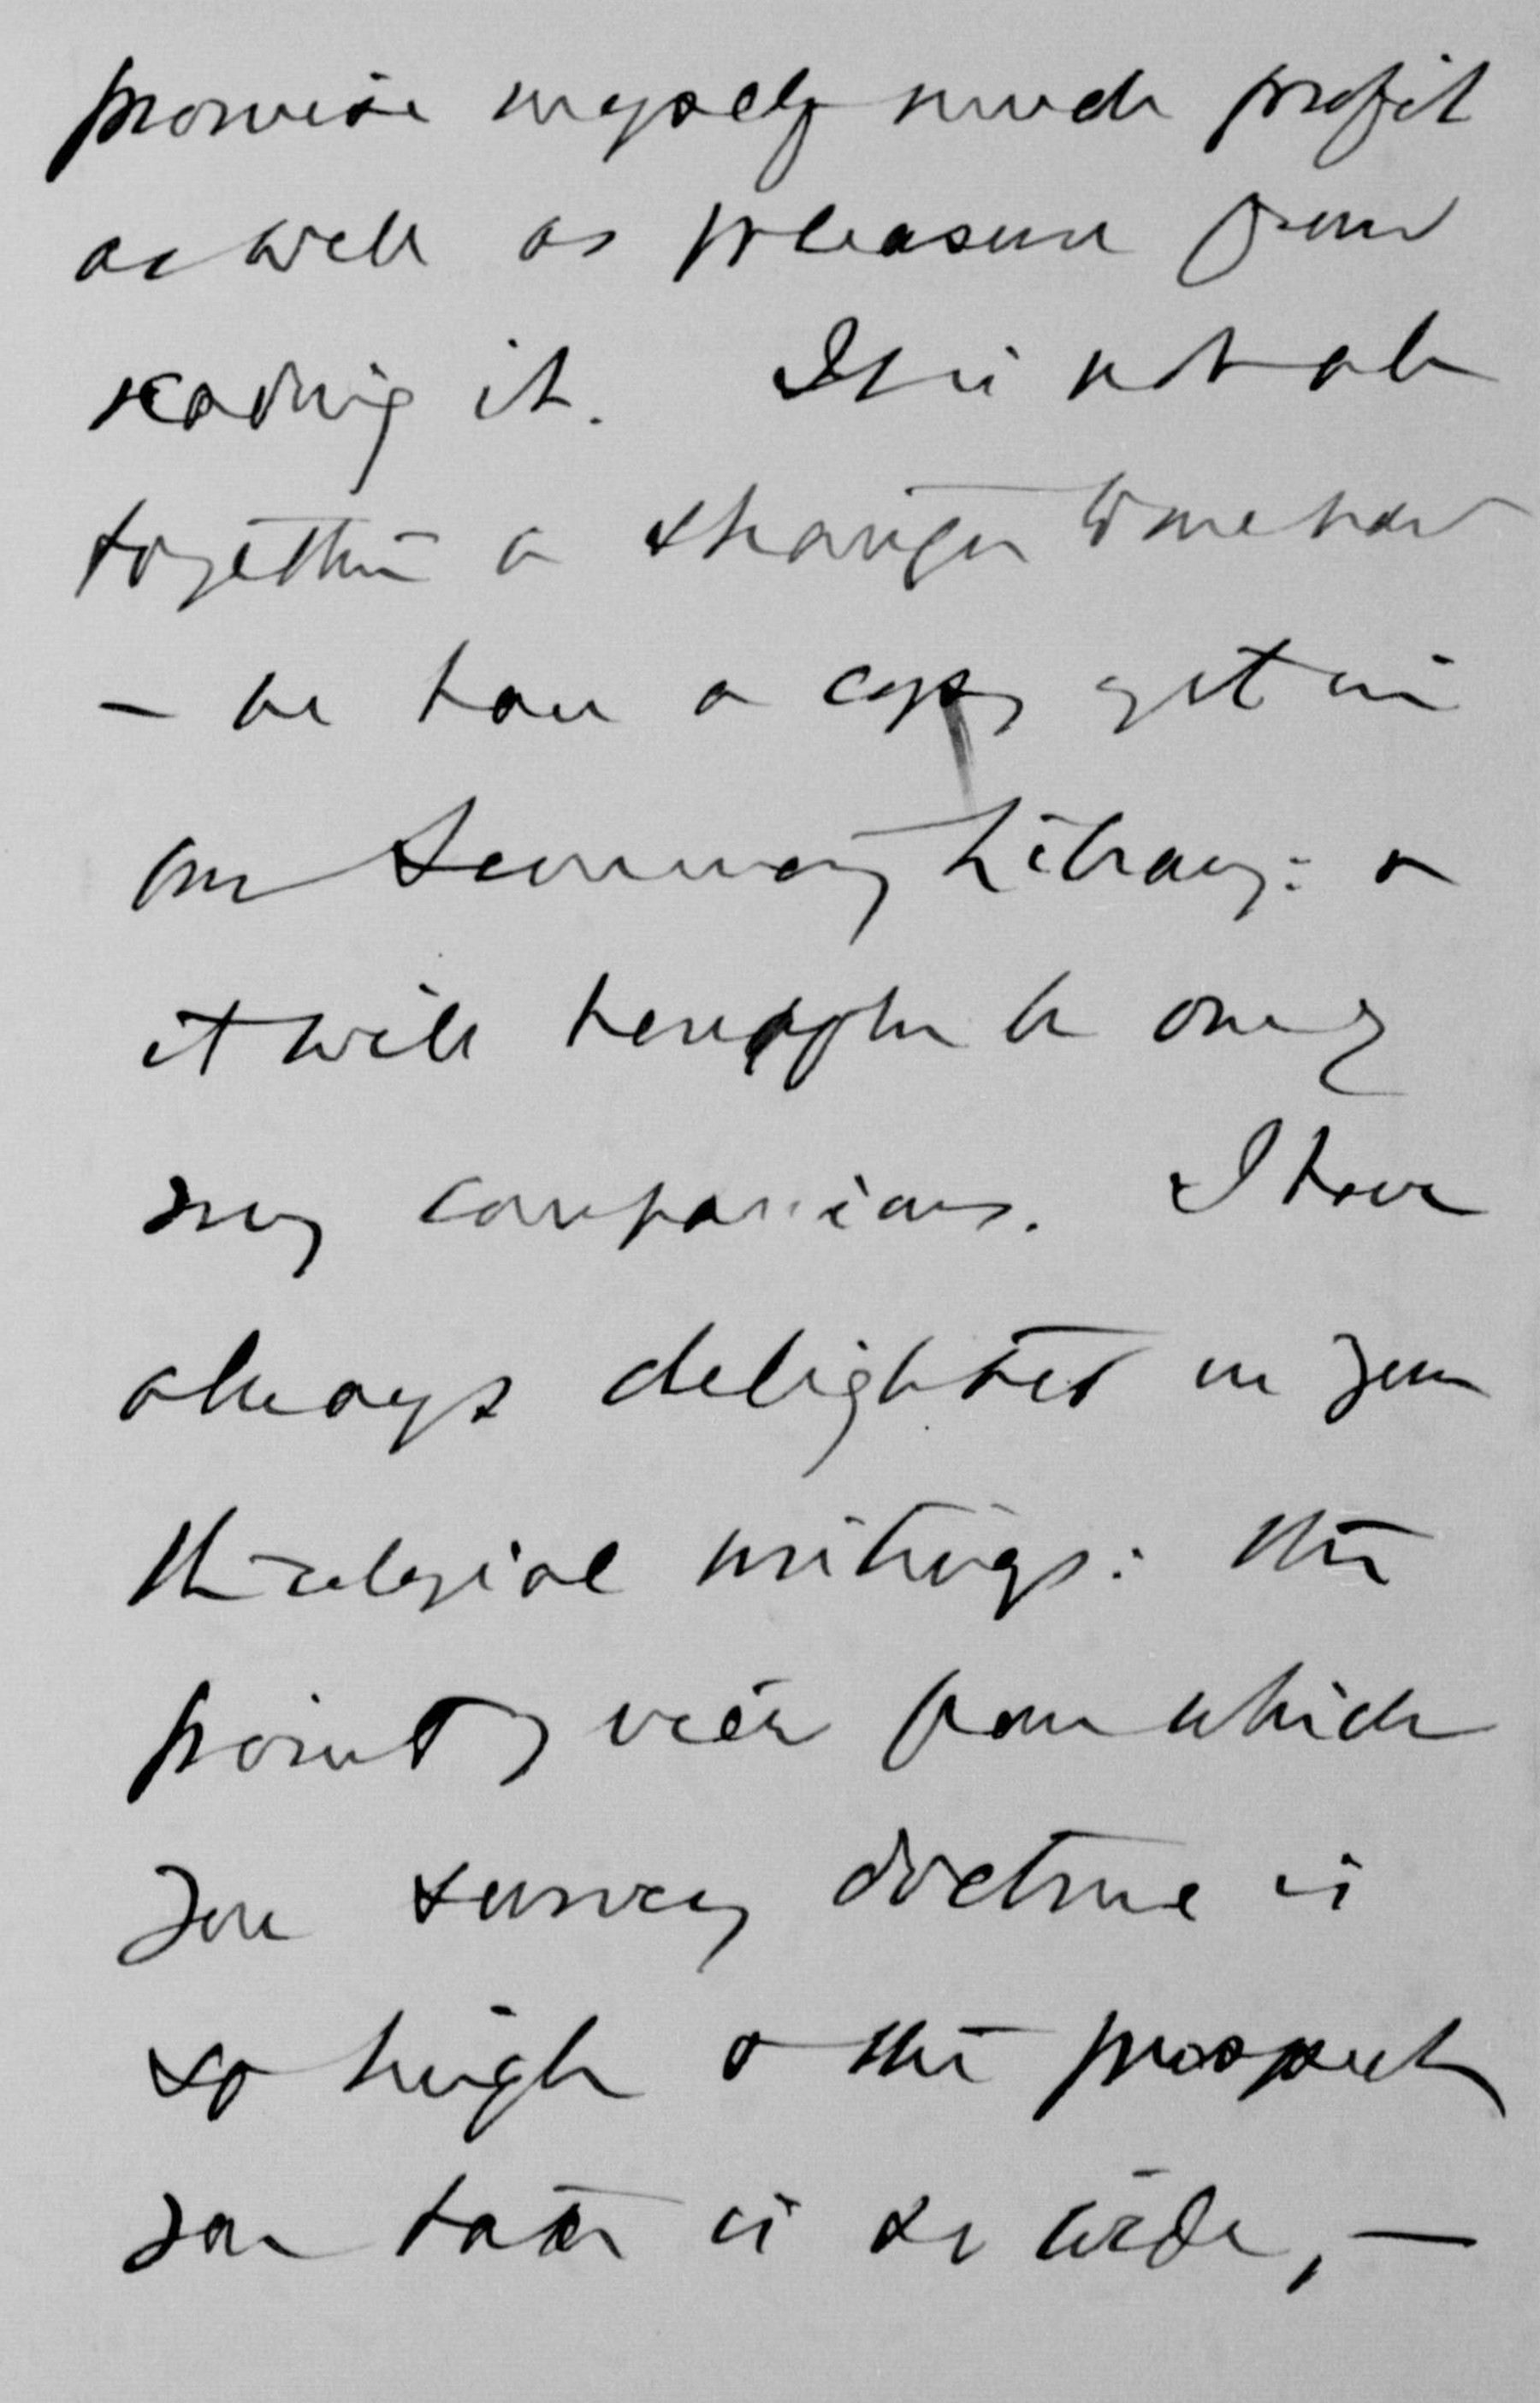 promise myself much profit
as well as pleasure from
reading it. It is not al-
together a stranger to me now
– we have a copy yet in
our Seminary Library: &
it will hereafter be one of
my companions. I have
always delighted in your
theological writings: the
point of view from which
you survey doctrine is
so high & the prospect
you take is so wide, —